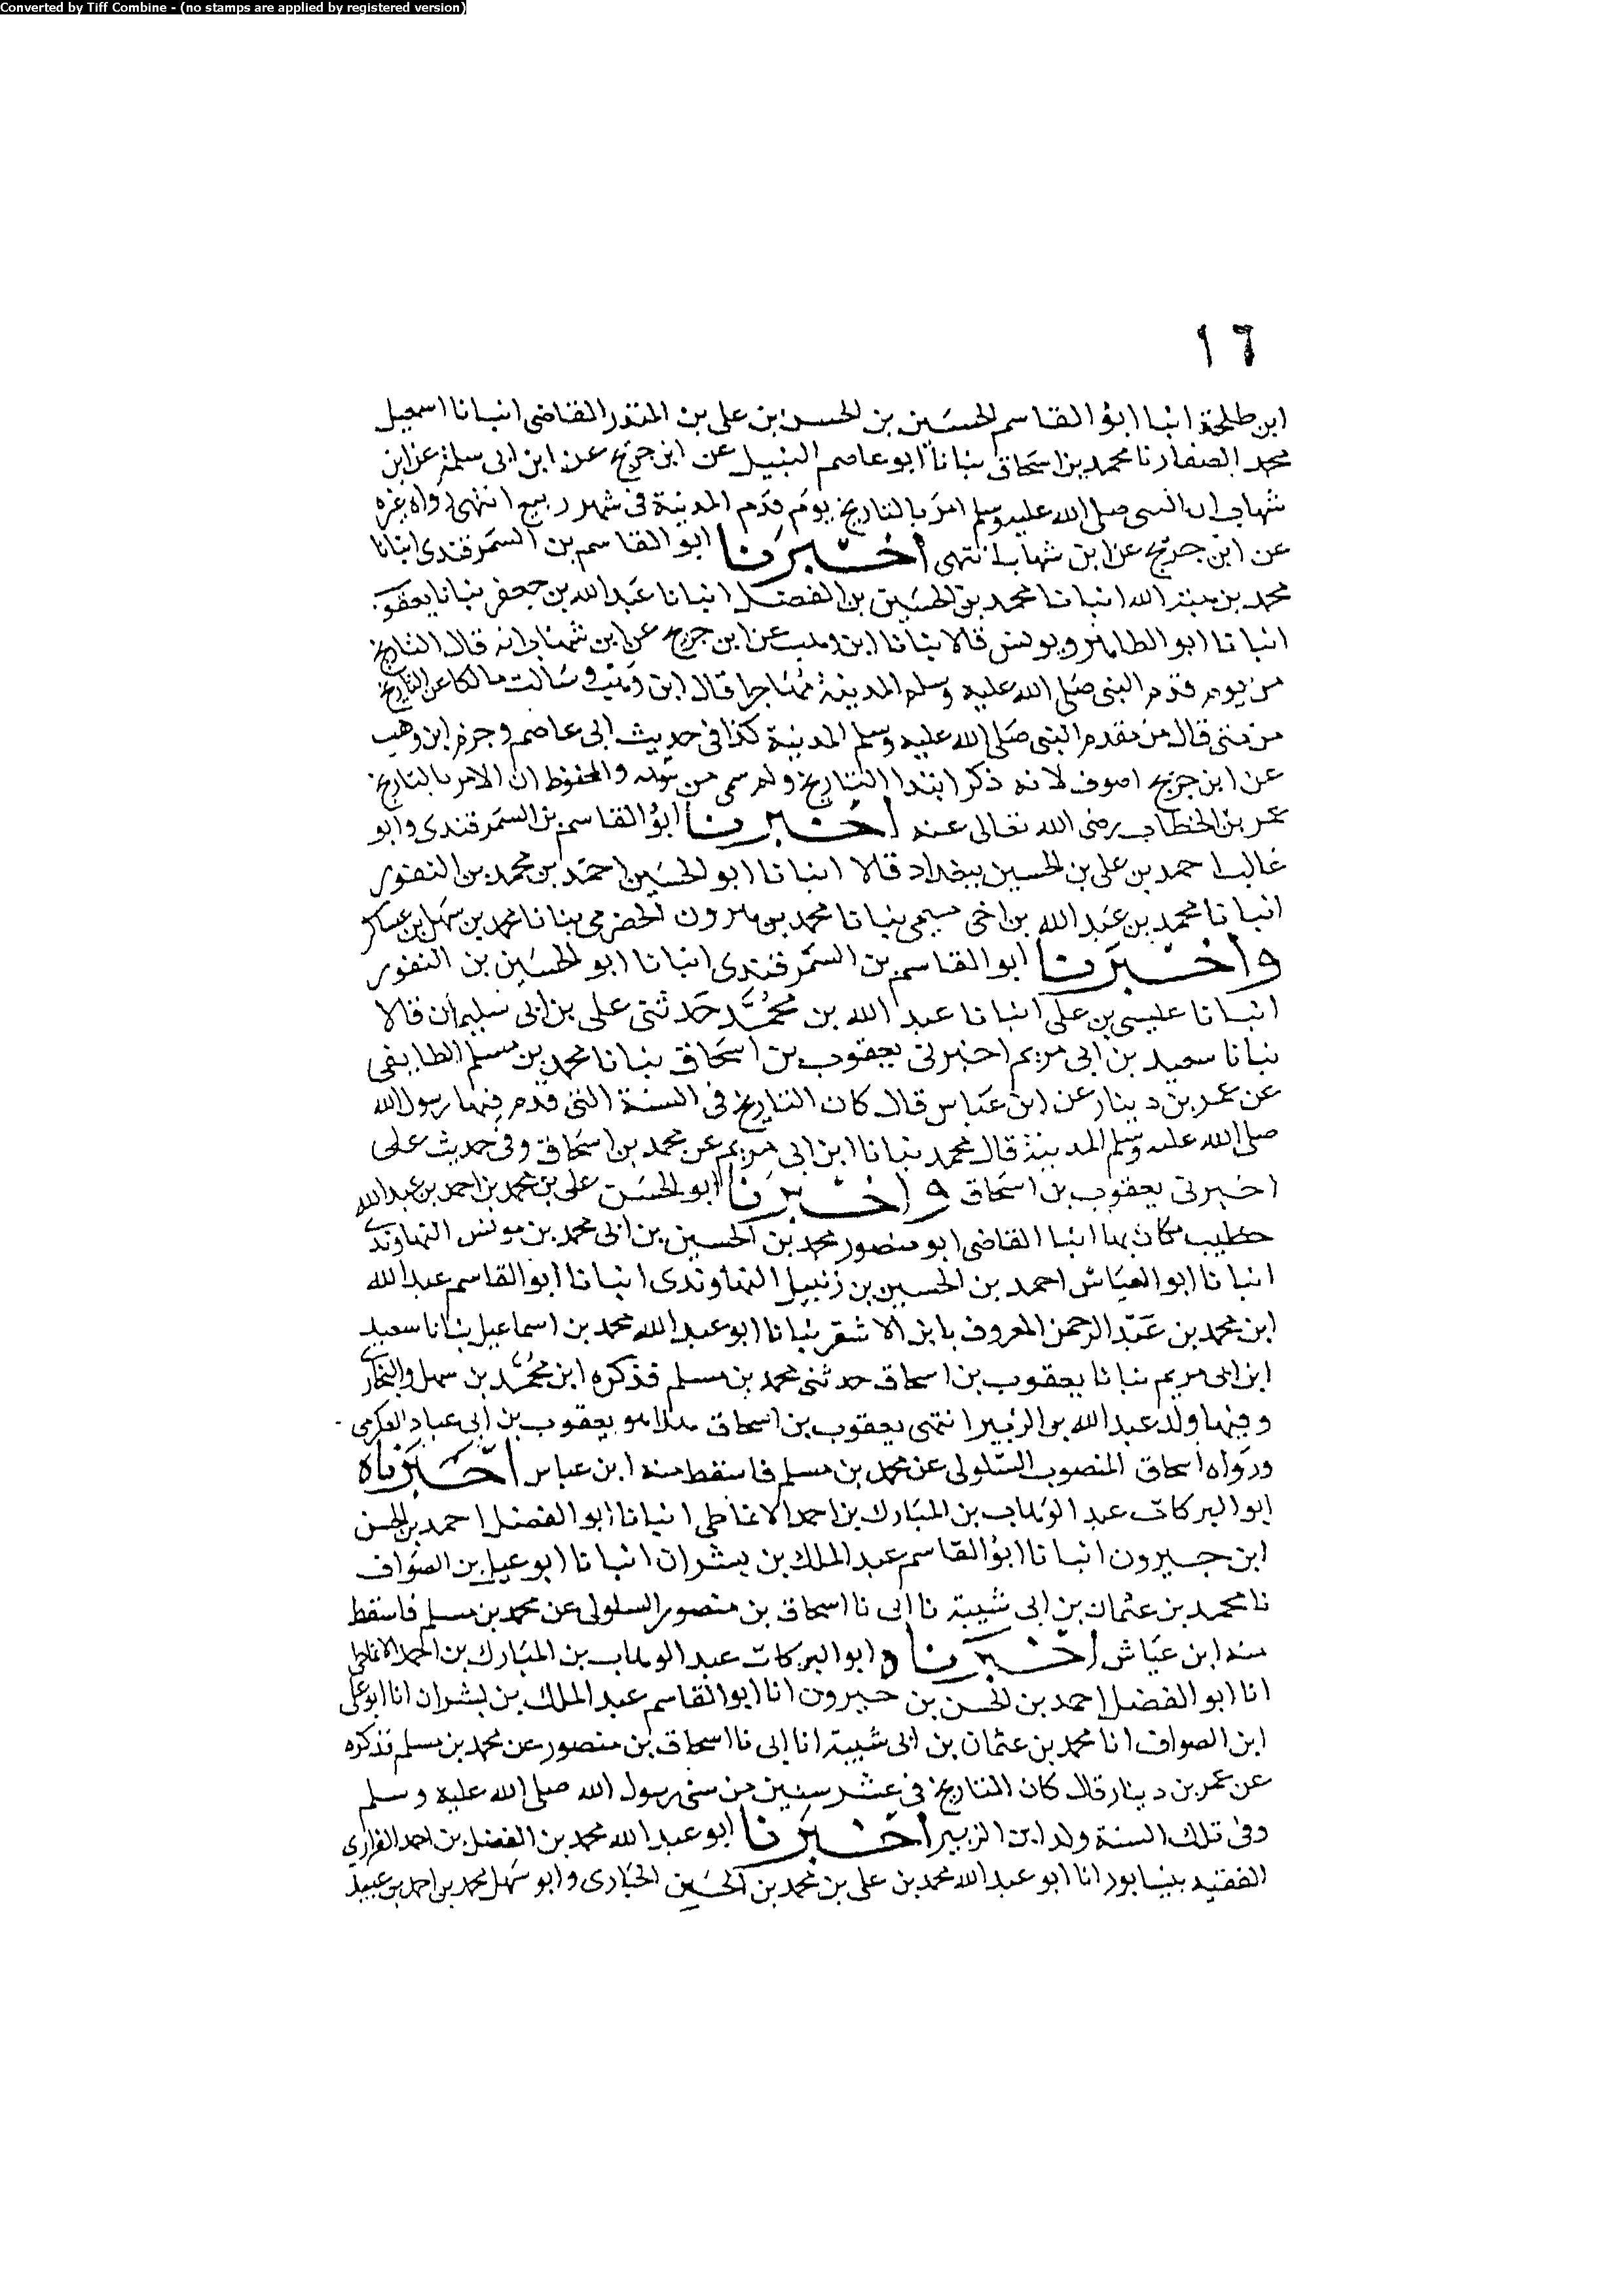 Converted by Tiff Combine - (no stamps are applied by registered version)
١٦
ابن طلحة انبا ابو القاسم الحسين بن الحسن بن علي بن المنذر القاضي انبانا اسمعيل
محمد الصفار نا محمد بن اسحاق نبانا ابو عاصم النبيل عن ابن جريج عن ابن ابي سلمة عن ابن
شهاب ان النبي صلى الله عليه وسلم امر بالتاريخ يوم قدم المدينة في شهر ربيع انتهى رواه غيره
عن ابن جريج عن ابن شهاب انتهى اخبرنا ابو القاسم بن السمرقندي انبانا
محمد بن هبة الله انبانا محمد بن الحسين بن الفضل انبانا عبد الله بن جعفر نبانا يعقوب
انبانا ابو الطاهر ويونس قالا نبانا ابن وهب عن ابن جريج عن ابن شهاب انه قال التاريخ
من يوم قدم النبي صلى الله عليه وسلم المدينة مهاجرا قال ابن وهب وسالت مالكا عن التاريخ
من متى قال من مقدم النبي صلى الله عليه وسلم المدينة كذا في حديث ابي عاصم وجزم ابن وهب
عن ابن جريج اصوف لانه ذكر ابتدا التاريخ ولم يسمى من والمحفوظ ان الامر بالتاريخ
عمر بن الخطاب رضي الله تعالى عنه اخبرنا ابو القاسم بن السمرقندي وابو
غالب احمد بن علي بن الحسين ببغداد قالا انبانا ابو الحسين احمد بن محمد بن النقور
انبانا محمد بن عبد الله بن اخي ميمي نبانا محمد بن هرون الحضرمي نبانا محمد بن سهل بن عساكر
واخبرنا ابو القاسم بن السمرقندي انبانا ابو الحسين بن النقور
انبانا عيسى بن علي انبانا عبد الله بن محمد حدثني علي بن ابي سليمان قالا
نبانا سعيد بن ابي مريم اخبرني يعقوب بن اسحاق نبانا محمد بن مسلم الطايفي
عن عمر بن دينار عن ابن عباس قال كان التاريخ في السنة التي قدم فيها رسول الله
صلى الله عليه وسلم المدينة قال محمد نبانا ابن ابي مريم عن محمد بن اسحاق وفي حديث علي
اخبرني يعقوب بن اسحاق واخبرنا ابو الحسن علي بن محمد بن احمد بن عبد الله
خطيب مكان بها انبا القاضي ابو منصور محمد بن الحسين بن ابي محمد بن مونس النهاوندي
انبانا ابو العباس احمد بن الحسين بن زنبيل النهاوندي انبانا ابو القاسم عبد الله
ابن محمد بن عبد الرحمن المعروف بابن الاشقر نبانا ابو عبد الله محمد بن اسماعيل نبانا سعيد
ابن ابي مريم نبانا يعقوب بن اسحاق حدثني محمد بن مسلم فذكره ابن محمد بن سهل والبخاري
وفيها ولد عبد الله بن الزبير انتهى يعقوب بن اسحاق هذا هو يعقوب بن ابي عباد العكرمي
ورواه اسحاق المنصوب السلولي عن محمد بن مسلم فاسقط منه ابن عباس اخبرناه
ابو البركات عبد الوهاب بن المبارك بن احمد الانماطي انبانا ابو الفضل احمد بن الحسن
ابن خيرون انبانا ابو القاسم عبد الملك بن بشران انبانا ابو علي بن الصواف
نا محمد بن عثمان بن ابي شيبة نا ابي نا اسحاق بن منصور السلولي عن محمد بن مسلم فاسقط
منه ابن عياش اخبرناه ابو البركات عبد الوهاب بن المبارك بن احمد الانماطي
انا ابو الفضل احمد بن الحسن بن خيرون انا ابو القاسم عبد الملك بن بشران انا ابو علي
ابن الصواف انا محمد بن عثمان بن ابي شيبة انا ابي نا اسحاق بن منصور عن محمد بن مسلم فذكره
عن عمر بن دينار قال كان التاريخ في عشر سنين من سني رسول الله صلى الله عليه وسلم
وفي تلك السنة ولد ابن الزبير اخبرنا ابو عبد الله محمد بن الفضل بن احمد الفزاري
الفقيه بنيسابور انا ابو عبد الله محمد بن علي بن محمد بن الحسين الخبازي وابو سهل محمد بن احمد بن عبيد